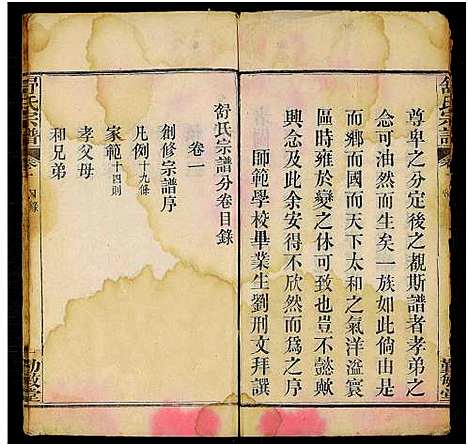 尊卑之分定後之觀斯譜者孝弟之
念可油然而生矣一族如此倘由是
而鄉而國而天下太和之氣洋溢寰
區時雍於變之休可致也豈不懿歟
興念及此余安得不欣然而為之序
師範學校畢業生劉刑文拜譔
舒氏宗譜
勤敬堂
舒氏宗譜分卷目錄
卷一
創修宗譜序
凡例十九條
家範十四則
孝父母
和兄弟
舒氏宗譜
卷一
目錄
一